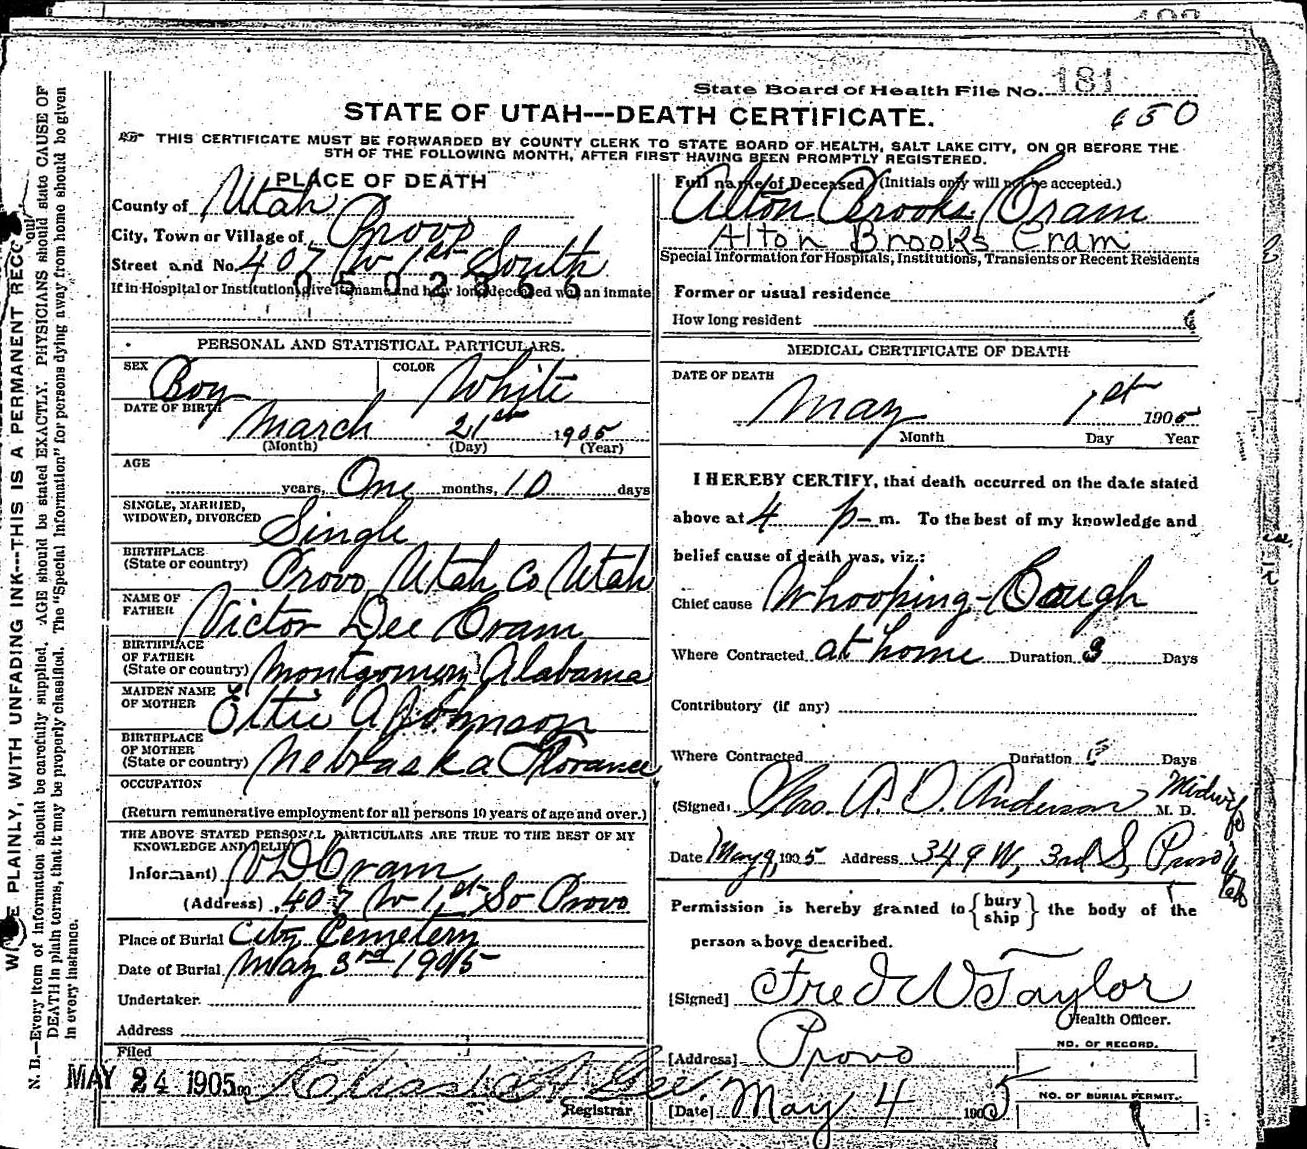 State Board of Health File No. 181
650
STATE OF UTAH---DEATH CERTIFICATE.
THIS CERTIFICATE MUST BE FORWARDED BY COUNTY CLERK TO STATE BOARD OF HEALTH, SALT LAKE CITY, ON OR BEFORE THE
5TH OF THE FOLLOWING MONTH, AFTER FIRST HAVING BEEN PROMPTLY REGISTERED.
PLACE OF DEATH
County of Utah
City, Town or Village of Provo
Street and No. 407 W 1st South
0502366
If in Hospital or Institution, give its name and how long deceased was an inmate
PERSONAL AND STATISTICAL PARTICULARS.
SEX Boy COLOR White
DATE OF BIRTH March 21st 1905
(Month) (Day) (Year)
AGE years, One months, 10 days
SINGLE, MARRIED,
WIDOWED, DIVORCED Single
BIRTHPLACE
(State or country) Provo Utah Co Utah
NAME OF
FATHER Victor Dee Cram
BIRTHPLACE
OF FATHER
(State or country) Montgomery Alabama
MAIDEN NAME
OF MOTHER A Johnson
BIRTHPLACE
OF MOTHER
(State or country) Nebraska Florance
OCCUPATION
(Return remunerative employment for all persons 10 years of age and over.)
THE ABOVE STATED PERSONAL PARTICULARS ARE TRUE TO THE BEST OF MY
KNOWLEDGE AND BELIEF
Informant) V D Cram
(Address) 407 W 1st So Provo
Place of Burial City Cemetery
Date of Burial May 3rd 1905
Undertaker
Address
Filed
MAY 24 1905
Registrar
Full name of Deceased (Initials only will not be accepted.)
Alton Brooks Cram
Alton Brooks Cram
Special Information for Hospitals, Institutions, Transients or Recent Residents
Former or usual residence
How long resident
MEDICAL CERTIFICATE OF DEATH
DATE OF DEATH
May 1st 1905
Month Day Year
I HEREBY CERTIFY, that death occurred on the date stated
above at 4 p-m. To the best of my knowledge and
belief cause of death was, viz.:
Chief cause Whooping-Cough
Where Contracted at home Duration 3 Days
Contributory (if any)
Where Contracted Duration Days
(Signed) Mrs. A. D. Anderson Midwife M. D.
Date May 9, 1905 Address 349 W, 3rd S, Provo Utah
Permission is hereby granted to {bury
ship} the body of the
person above described.
[Signed] Fred W Taylor
Health Officer.
[Address] Provo
[Date] May 4 1905
NO. OF RECORD.
NO. OF BURIAL PERMIT.
WRITE PLAINLY, WITH UNFADING INK---THIS IS A PERMANENT RECORD
N. B.—Every item of information should be carefully supplied. AGE should be stated EXACTLY. PHYSICIANS should state CAUSE OF
DEATH in plain terms, that it may be properly classified. The "Special Information" for persons dying away from home should be given
in every instance.